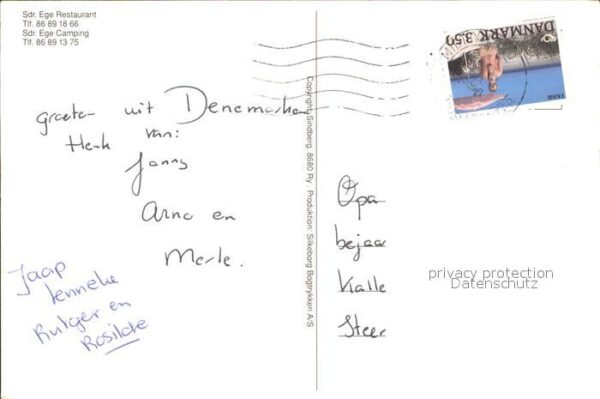 Sdr. Ege Restaurant
Tlf. 86 89 18 66
Sdr. Ege Camping
Tlf. 86 89 13 75
DANMARK 3.50
FANØ
groeten uit Denemarken
Herk van:
Janny
Arno en
Merle.
Jaap
Jenneke
Rutger en
Rosilde
Copyright Sindberg, 8680 Ry Produktion: Silkeborg Bogtrykkeri A/S
Opa
bejaa
Kalle
Steer
privacy protection
Datenschutz